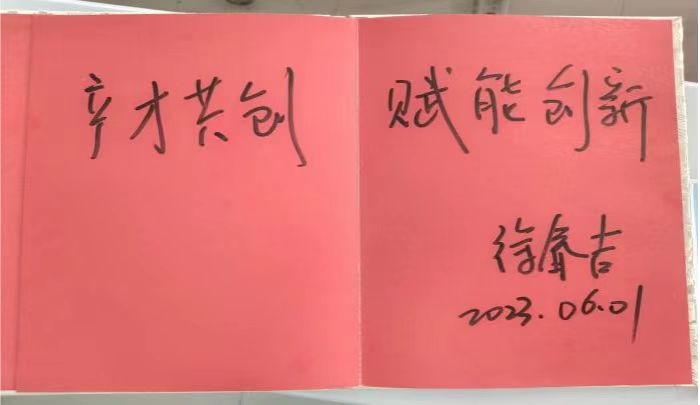 产才共创 赋能创新
徐吉
2023.06.01